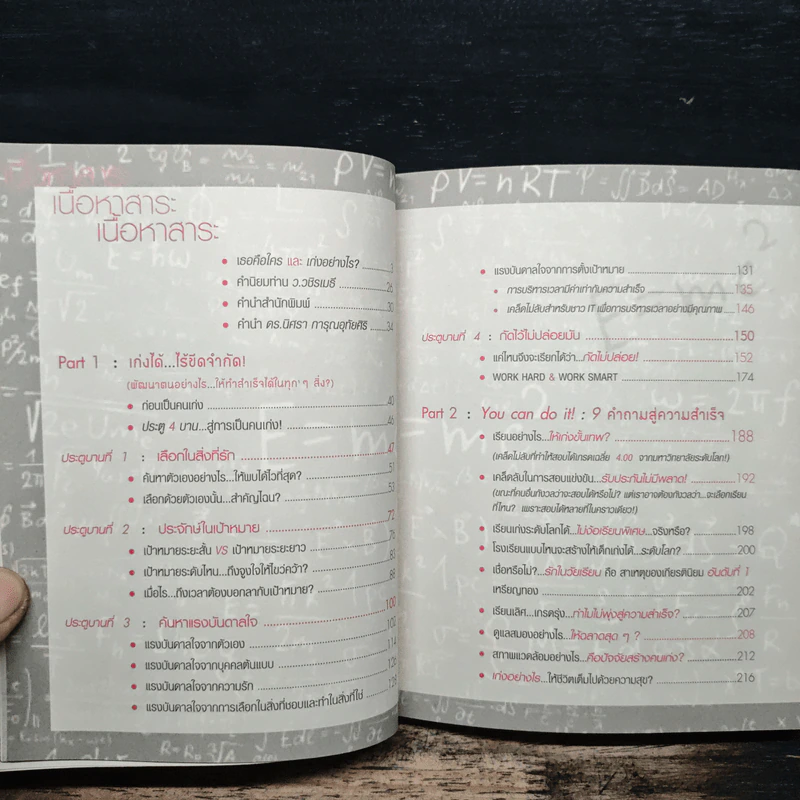 เนื้อหาสาระ
เนื้อหาสาระ
• เธอคือใคร และ เก่งอย่างไร? 1
• คำนิยมท่าน ว.วชิรเมธี 26
• คำนำสำนักพิมพ์ 30
• คำนำ ดร.นิศรา การุณอุทัยศิริ 34
Part 1 : เก่งได้...ไร้ขีดจำกัด!
(พัฒนาตนอย่างไร...ให้ทำสำเร็จได้ในทุก ๆ สิ่ง?)
• ก่อนเป็นคนเก่ง 40
• ประตู 4 บาน...สู่การเป็นคนเก่ง! 46
ประตูบานที่ 1 : เลือกในสิ่งที่รัก 47
• ค้นหาตัวเองอย่างไร...ให้พบได้ไวที่สุด? 51
• เลือกด้วยตัวเองนั้น...สำคัญไฉน? 53
ประตูบานที่ 2 : ประจักษ์ในเป้าหมาย 72
• เป้าหมายระยะสั้น VS เป้าหมายระยะยาว 76
• เป้าหมายระดับไหน...ถึงจูงใจให้ไขว่คว้า? 83
• เมื่อไร...ถึงเวลาต้องบอกลากับเป้าหมาย? 88
ประตูบานที่ 3 : ค้นหาแรงบันดาลใจ 100
• แรงบันดาลใจจากตัวเอง 102
• แรงบันดาลใจจากบุคคลต้นแบบ 114
• แรงบันดาลใจจากความรัก 126
• แรงบันดาลใจจากการเลือกในสิ่งที่ชอบและทำในสิ่งที่ใช่ 128
• แรงบันดาลใจจากการตั้งเป้าหมาย 131
• การบริหารเวลามีค่าเท่ากับความสำเร็จ 135
• เคล็ดไม่ลับสำหรับชาว IT เพื่อการบริหารเวลาอย่างมีคุณภาพ 146
ประตูบานที่ 4 : กัดไว้ไม่ปล่อยมัน 150
• แค่ไหนจึงจะเรียกได้ว่า...กัดไม่ปล่อย! 152
• WORK HARD & WORK SMART 174
Part 2 : You can do it! : 9 คำถามสู่ความสำเร็จ
• เรียนอย่างไร...ให้เก่งขั้นเทพ? 188
(เคล็ดไม่ลับที่ทำให้สอบได้เกรดเฉลี่ย 4.00 จากมหาวิทยาลัยระดับโลก!)
• เคล็ดลับในการสอบแข่งขัน...รับประกันไม่มีพลาด! 192
(ขณะที่คนอื่นกังวลว่าจะสอบได้หรือไม่? แต่เราอาจต้องกังวลว่า...จะเลือกเรียน
ที่ไหน? เพราะสอบได้หลายที่ในคราวเดียว!)
• เรียนเก่งระดับโลกได้...ไม่ง้อเรียนพิเศษ...จริงหรือ? 198
• โรงเรียนแบบไหนจะสร้างให้เด็กเก่งได้...ระดับโลก? 200
• เชื่อหรือไม่?...รักในวัยเรียน คือ สาเหตุของเกียรตินิยม อันดับที่ 1
เหรียญทอง 202
• เรียนเลิศ...เกรดรุ่ง...ทำไมไม่พุ่งสู่ความสำเร็จ? 207
• ดูแลสมองอย่างไร...ให้ฉลาดสุด ๆ ? 208
• สภาพแวดล้อมอย่างไร...คือปัจจัยสร้างคนเก่ง? 212
• เก่งอย่างไร...ให้ชีวิตเต็มไปด้วยความสุข? 216